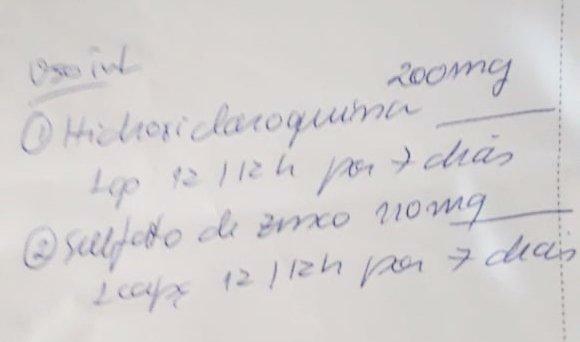 Uso int
200mg
① Hidroxicloroquina
1cp 12/12h por 7 dias
② Sulfato de zinco 110mg
1 caps 12/12h por 7 dias